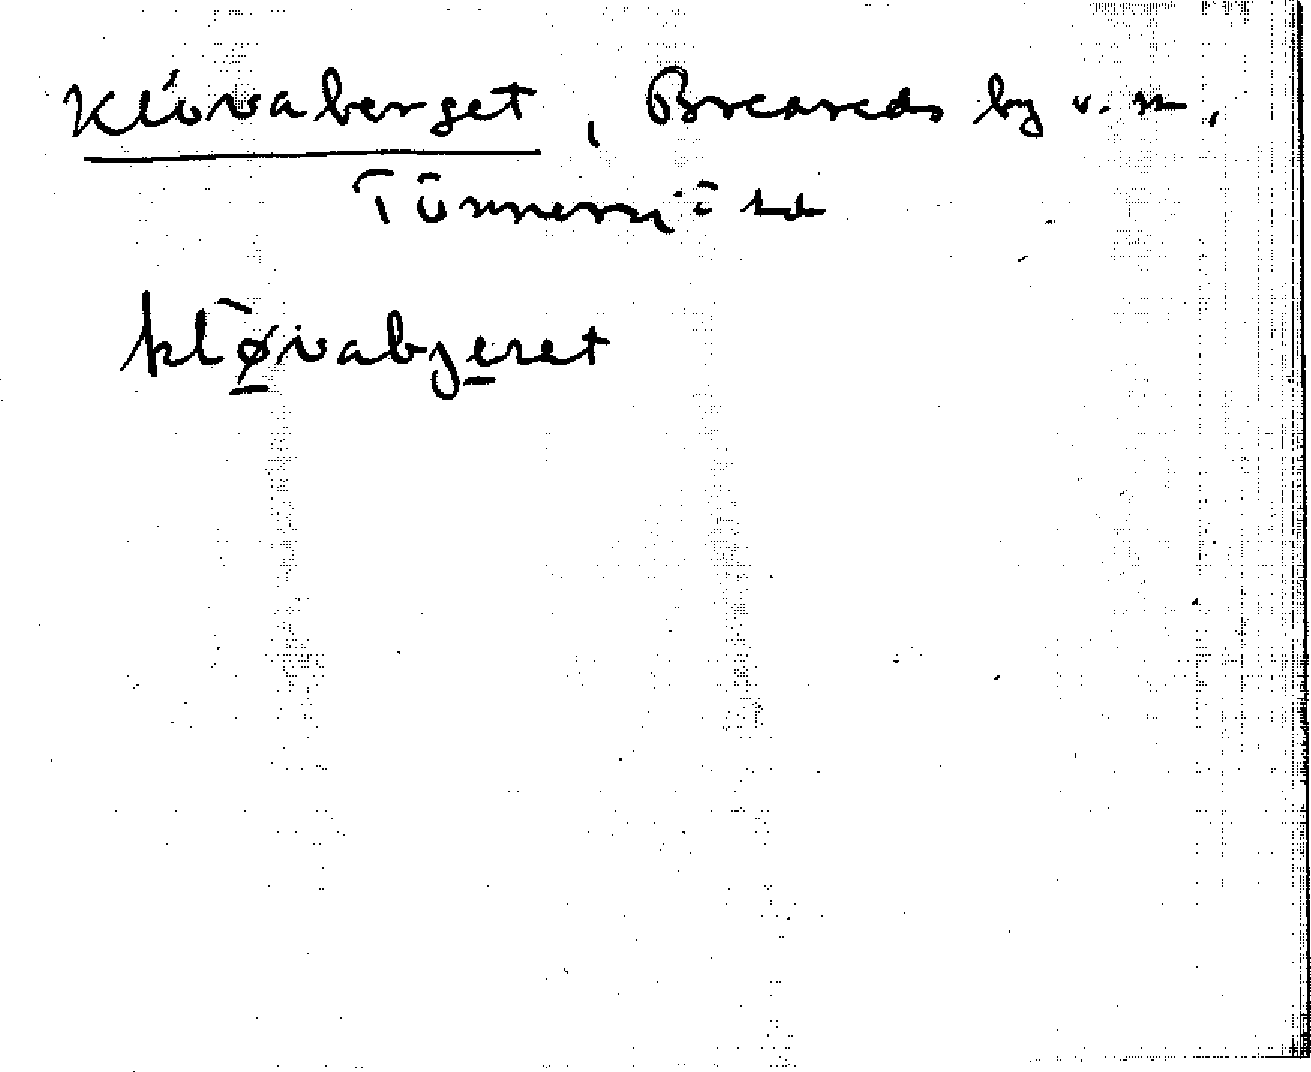 Klövaberget, Breareds by o. sn,
Tönnersjö hd
kløvabjeret